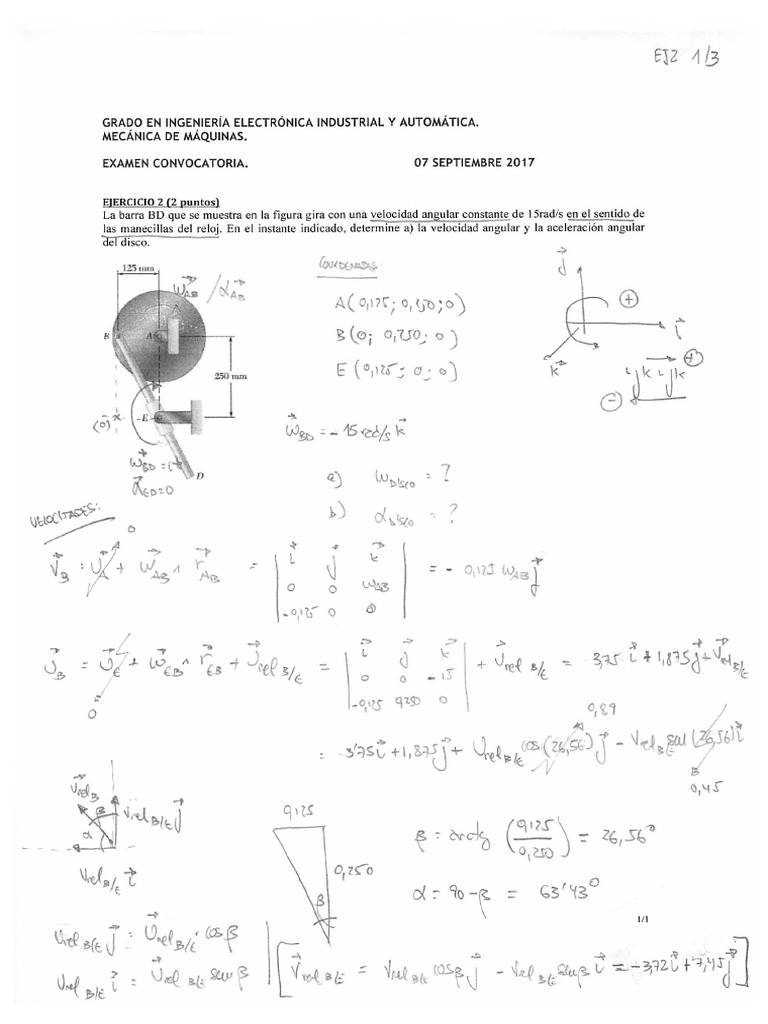 EJ2 1/3
GRADO EN INGENIERÍA ELECTRÓNICA INDUSTRIAL Y AUTOMÁTICA.
MECÁNICA DE MÁQUINAS.
EXAMEN CONVOCATORIA. 07 SEPTIEMBRE 2017
EJERCICIO 2 (2 puntos)
La barra BD que se muestra en la figura gira con una velocidad angular constante de 15rad/s en el sentido de
las manecillas del reloj. En el instante indicado, determine a) la velocidad angular y la aceleración angular
del disco.
125 mm
ω_AB / α_AB
B A
250 mm
(0) E
D
ω_BD = C
α_ED=0
COORDENADAS:
A(0,125; 0,250; 0)
B(0; 0,250; 0)
E(0,125; 0; 0)
j
+
i
k
ijkijk +
-
ω_BD = -15 rad/s k
a) ω_DISCO = ?
b) α_DISCO = ?
VELOCIDADES:
V_B = V_A + ω_AB ^ r_AB = | i j k | 0 0 ω_AB | -0,125 0 0 | = -0,125 ω_AB j
0
V_B = V_E + ω_EB ^ r_EB + V_rel B/E = | i j k | 0 0 -15 | -0,125 0,250 0 | + V_rel B/E = 3,75 i + 1,875 j + V_rel B/E
0
0,89
= 3'75 i + 1,875 j + V_rel B/E cos(26,56) j - V_rel B/E sen(26,56) i
0,45
V_rel B
β
α
V_rel B/E j
V_rel B/E i
0,125
0,250
β
β = arctg (0,125/0,250) = 26,56°
α = 90 - β = 63'43°
1/1
V_rel B/E j = V_rel B/E · cos β
V_rel B/E i = V_rel B/E sen β
[V_rel B/E = V_rel B/E cos β j - V_rel B/E sen β i = -3,72 i + 7,45 j]